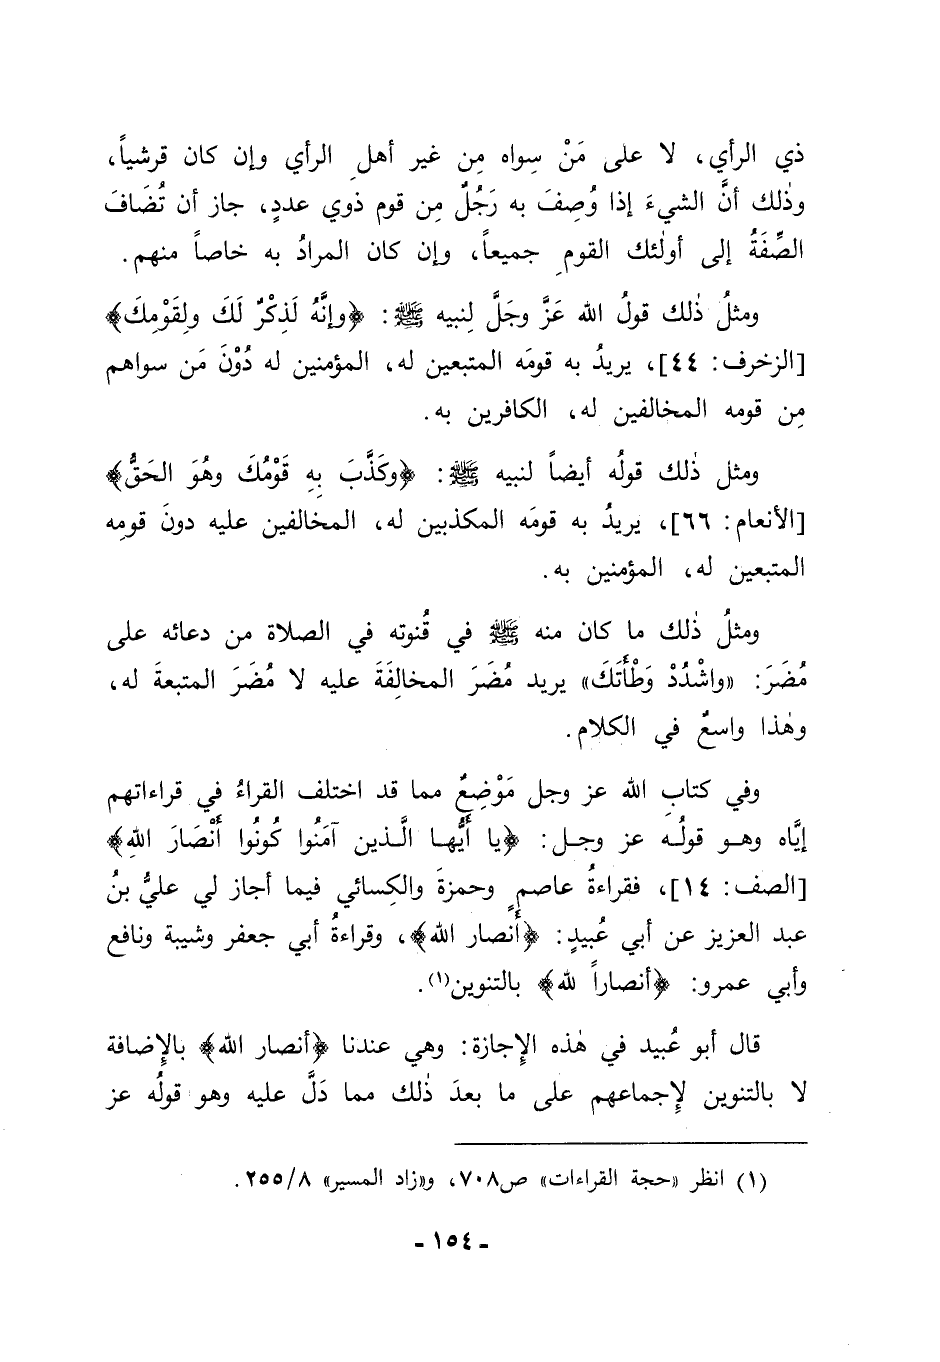 ذي الرأي، لا على مَنْ سِواه مِن غير أهلِ الرأي وإن كان قرشياً،
وذٰلك أنَّ الشيءَ إذا وُصِفَ به رَجُلٌ مِن قوم ذوي عددٍ، جاز أن تُضَافَ
الصِّفَةُ إلى أولٰئك القومِ جميعاً، وإن كان المرادُ به خاصاً منهم.
ومثلُ ذٰلك قولُ الله عَزَّ وجَلَّ لِنبيه ﷺ: ﴿وإنَّهُ لَذِكْرٌ لَكَ ولِقَوْمِكَ﴾
[الزخرف: ٤٤]، يريدُ به قومَه المتبعين له، المؤمنين له دُوْنَ مَن سواهم
مِن قومه المخالفين له، الكافرين به.
ومثل ذٰلك قولُه أيضاً لنبيه ﷺ: ﴿وكَذَّبَ بِهِ قَوْمُكَ وهُوَ الحَقُّ﴾
[الأنعام: ٦٦]، يريدُ به قومَه المكذبين له، المخالفين عليه دونَ قومِه
المتبعين له، المؤمنين به.
ومثلُ ذٰلك ما كان منه ﷺ في قُنوته في الصلاة من دعائه على
مُضَرَ: «واشْدُدْ وَطْأَتَكَ» يريد مُضَرَ المخالِفَةَ عليه لا مُضَرَ المتبعةَ له،
وهٰذا واسعٌ في الكلام.
وفي كتابِ الله عز وجل مَوْضِعٌ مما قد اختلف القراءُ في قراءاتهم
إيَّاه وهو قولُه عز وجل: ﴿يا أيُّها الَّذين آمَنُوا كُونُوا أَنْصَارَ اللهِ﴾
[الصف: ١٤]، فقراءةُ عاصمٍ وحمزةَ والكِسائي فيما أجاز لي عليُّ بنُ
عبد العزيز عن أبي عُبيدٍ: ﴿أَنصار الله﴾، وقراءةُ أبي جعفر وشيبة ونافع
وأبي عمرو: ﴿أنصاراً لله﴾ بالتنوين(١).
قال أبو عُبيد في هٰذه الإِجازة: وهي عندنا ﴿أنصار الله﴾ بالإِضافة
لا بالتنوين لإِجماعهم على ما بعدَ ذٰلك مما دَلَّ عليه وهو قولُه عز
(١) انظر «حجة القراءات» ص٧٠٨، و«زاد المسير» ٢٥٥/٨.
- ١٥٤ -